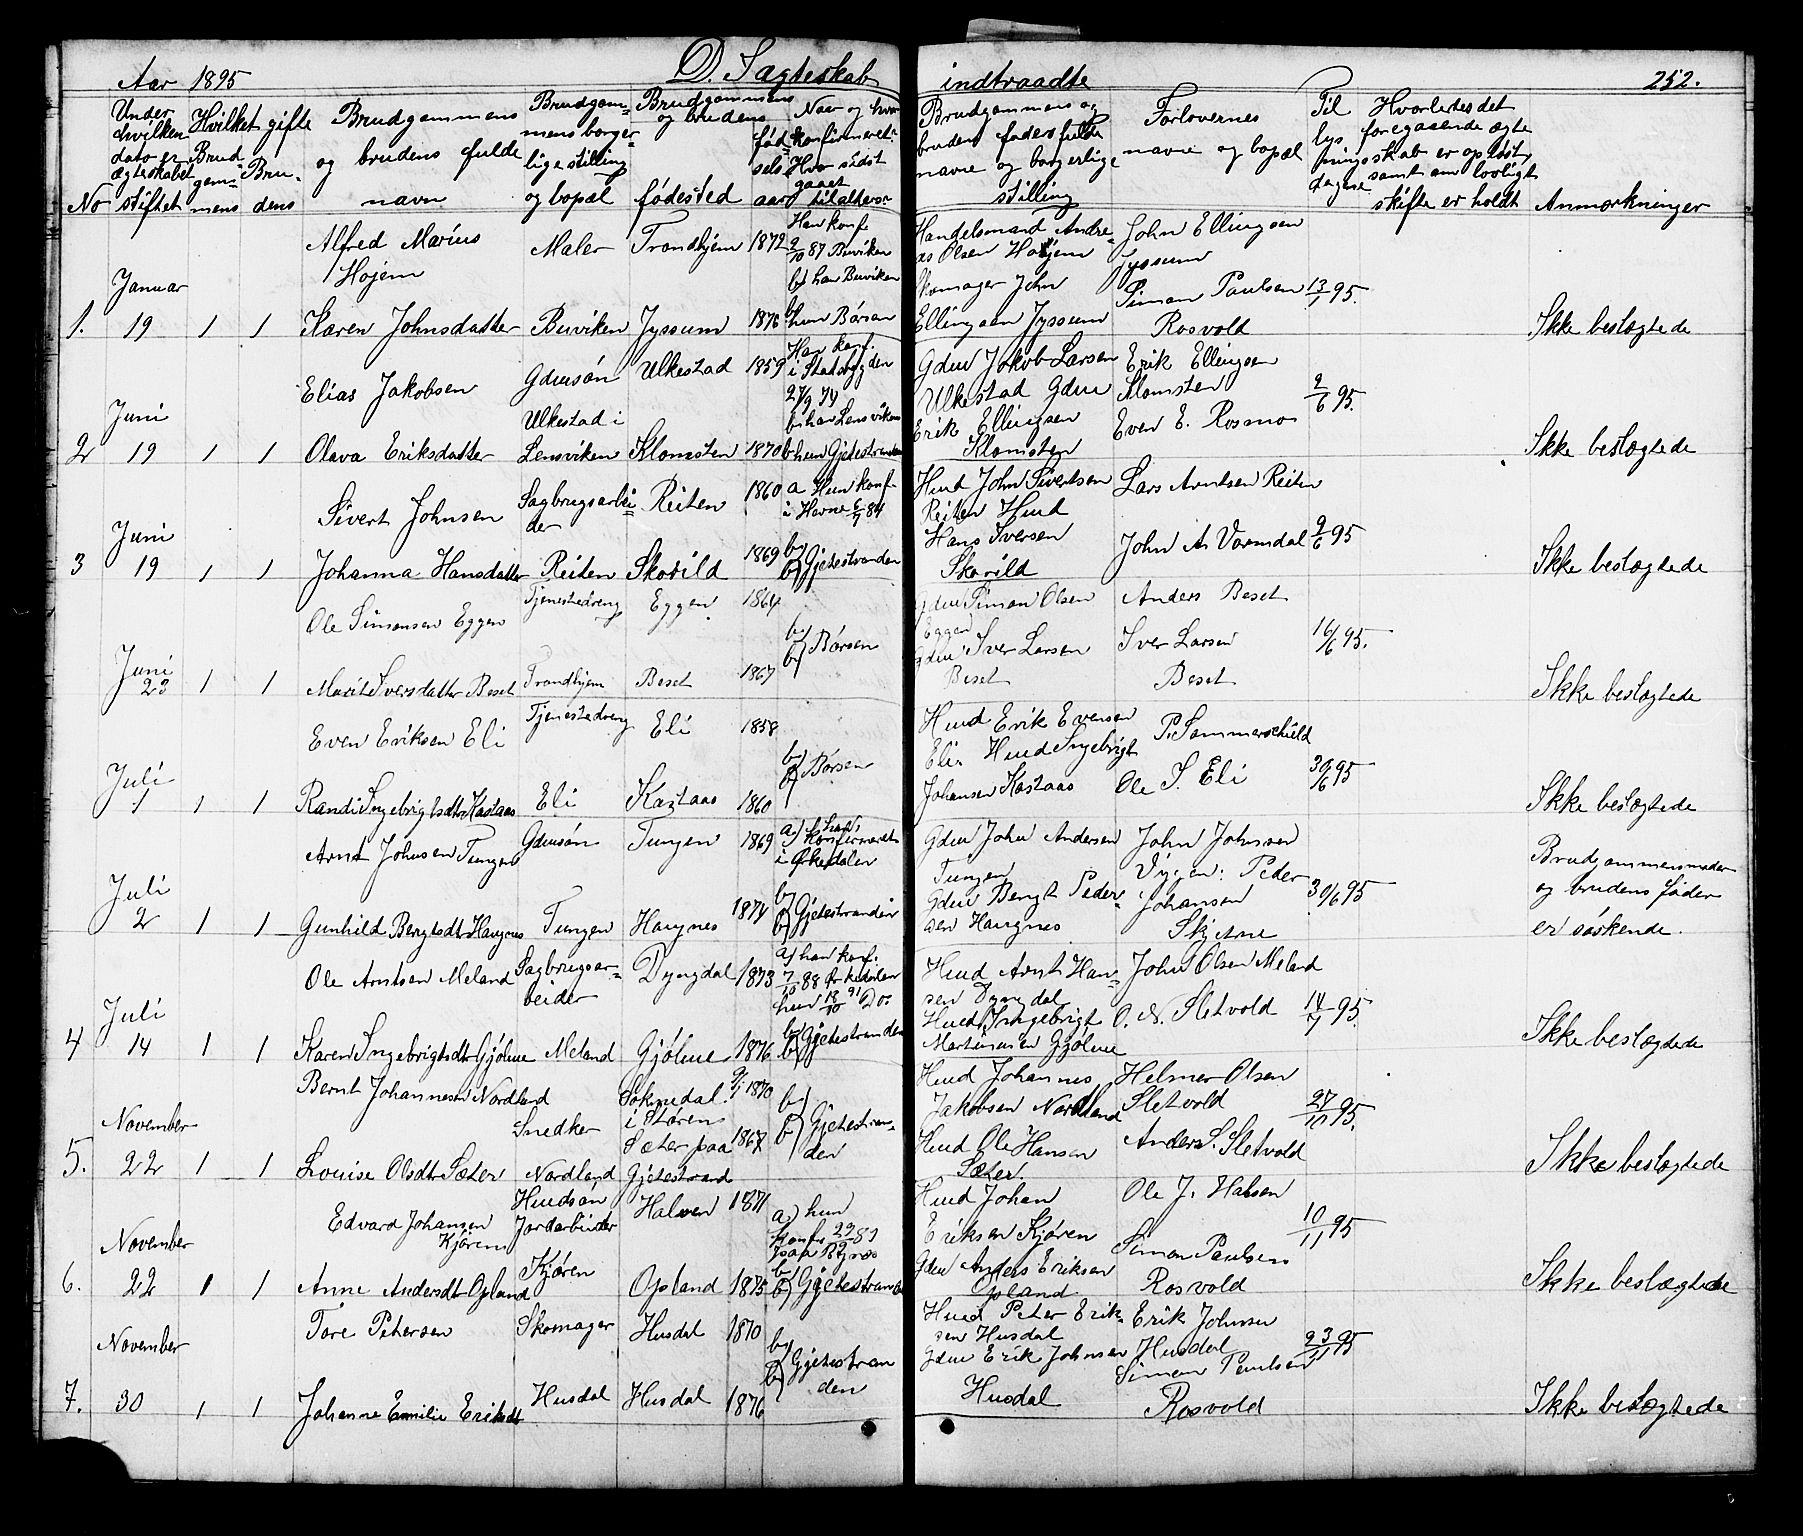 Aar 1895 D. I ægteskab indtraadte 252.
No
Under hvilken dato er ægteskabet stiftet
Hvilket gifte
Brudgommens
Brudens
Brudgommens og brudens fulde navn
Brudgommens borgerlige stilling og bopæl
Brudgommens og brudens fødested
fødselsaar
Naar og hvor konfirmeret. Hvor sidst gaaet til alters
Brudgommens og bruden faders fulde navne og borgerlige stilling
Forlovernes navne og bopæl
Til lysningsdagene
Hvorledes det foregaaende ægteskab er opløst, samt om lovligt skifte er holdt
Anmærkninger
1. Januar 19 1 1
Alfred Marius Hojem
Maler Trondhjem 1872
Han konf. 2/10 87 Buviken
b) han Buviken
Karen Johnsdatter
Buviken Jyssum 1876
hun Børsen
Handelsmand Andreas Olsen Hojem
Skomager John Ellingsen Jyssum
John Ellingsen Jyssum
Simon Paulsen Rosvold
13/1 95.
Ikke beslægtede
2 Juni 19 1 1
Elias Jakobsen
Gdmsøn Ulkestad 1859
Han konf. i Stadsbygden 27/9 74
b. han Lensviken
Olava Eriksdatter
Ulkestad i Lensviken Klomsten 1870
b hun Gjetestranden
Gdm Jakob Larsen Ulkestad
Gdm Erik Ellingsen Klomsten
Erik Ellingsen Klomsten
Even E. Rosmo
2/6 95.
Ikke beslægtede
3 Juni 19 1 1
Sivert Johnsen
Sagbrugsarbeider Reiten 1860
a Hun konf. i Hevne 6/7 84
Johanna Hansdatter
Reiten Skorild 1869
b) b) Gjetestranden
Hmd John Sivertsen Reiten
Hmd Hans Iversen Skorild
Lars Arntsen Reiten
John A. Varmdal
9/6 95
Ikke beslægtede
Juni 23 1 1
Ole Simonsen Eggen
Tjenestedreng Eggen 1864
Marit Iversdatter Beset
Trondhjem Beset 1867
b) b) Børsen
Gdm Simon Olsen Eggen
Gdm Iver Larsen Beset
Anders Beset
Iver Larsen Beset
16/6 95.
Ikke beslægtede
Juli 1 1 1
Even Eriksen Eli
Tjenestedreng Eli 1858
Randi Ingebrigtsdtr Kastaas
Eli Kastaas 1860
b) b) Børsen
Hmd Erik Evensen Eli.
Hmd Ingebrigt Johansen Kastaas
P. Sommerschield
Ole I. Eli
30/6 95
Ikke beslægtede
Juli 2 1 1
Arnt Johnsen Tungen
Gdmsøn Tungen 1869
a) han konfirmeret i Ørkedalen
Gunhild Bengtsdtr Haugnes
Tungen Haugnes 1874
b) b) Gjetestranden
Gdm John Andersen Tungen
Gdm Bengt Pedersen Haugnes
John Johnsen Viggen:
Peder Johansen Skjetne
30/6 95
Brudgommens moder og brudens fader er søskende.
4 Juli 14 1 1
Ole Arntsen Meland
Sagbrugsarbeider Dyngdal 1873
a) han konf. 7/10 88 Ørkedalen
hun 18/10 91 Do.
Karen Ingebrigtsdtr Gjølme
Meland Gjølme 1876
b) b) Gjetestranden
Hmd Arnt Hansen Dyngdal
Hmd Ingebrigt Martinusen Gjølme
John Olsen Meland
O. N. Sletvold
14/7 95.
Ikke beslægtede
5. November 22 1 1
Bernt Johannesen Nordland
Snedker Soknedal i Støren 9/1 1870
Louise Olsdtr Sæter
Nordland Sæter paa Gjetestrand 1867
b) b) Gjetestranden
Hmd Johannes Jakobsen Nordland
Hmd Ole Hansen Sæter.
Helmer Olsen Sletvold
Anders S. Sletvold
27/10 95.
Ikke beslægtede
6. November 22 1 1
Edvard Johansen Kjøren
Husmdsøn Jordarbeider Halven 1871
a) hun konf. 22/ 89 paa Bynes
Anne Andersdtr Opland
Kjøren Opland 1875
b) b) Gjetestranden
Hmd Johan Eriksen Kjøren
Gdm Anders Eriksen Opland
Ole J. Halsen
Simon Paulsen Rosvold
10/11 95
Ikke beslægtede
7. November 30 1 1
Tore Petersen
Skomager Husdal 1870
Johanne Emilie Eriksdt
Husdal Husdal 1876
b) b) Gjetestranden
Hmd Peter Eriksen Husdal
Gdm Erik Johnsen Husdal
Erik Johnsen Husdal
Simon Paulsen Rosvold
23/11 95
Ikke beslægtede